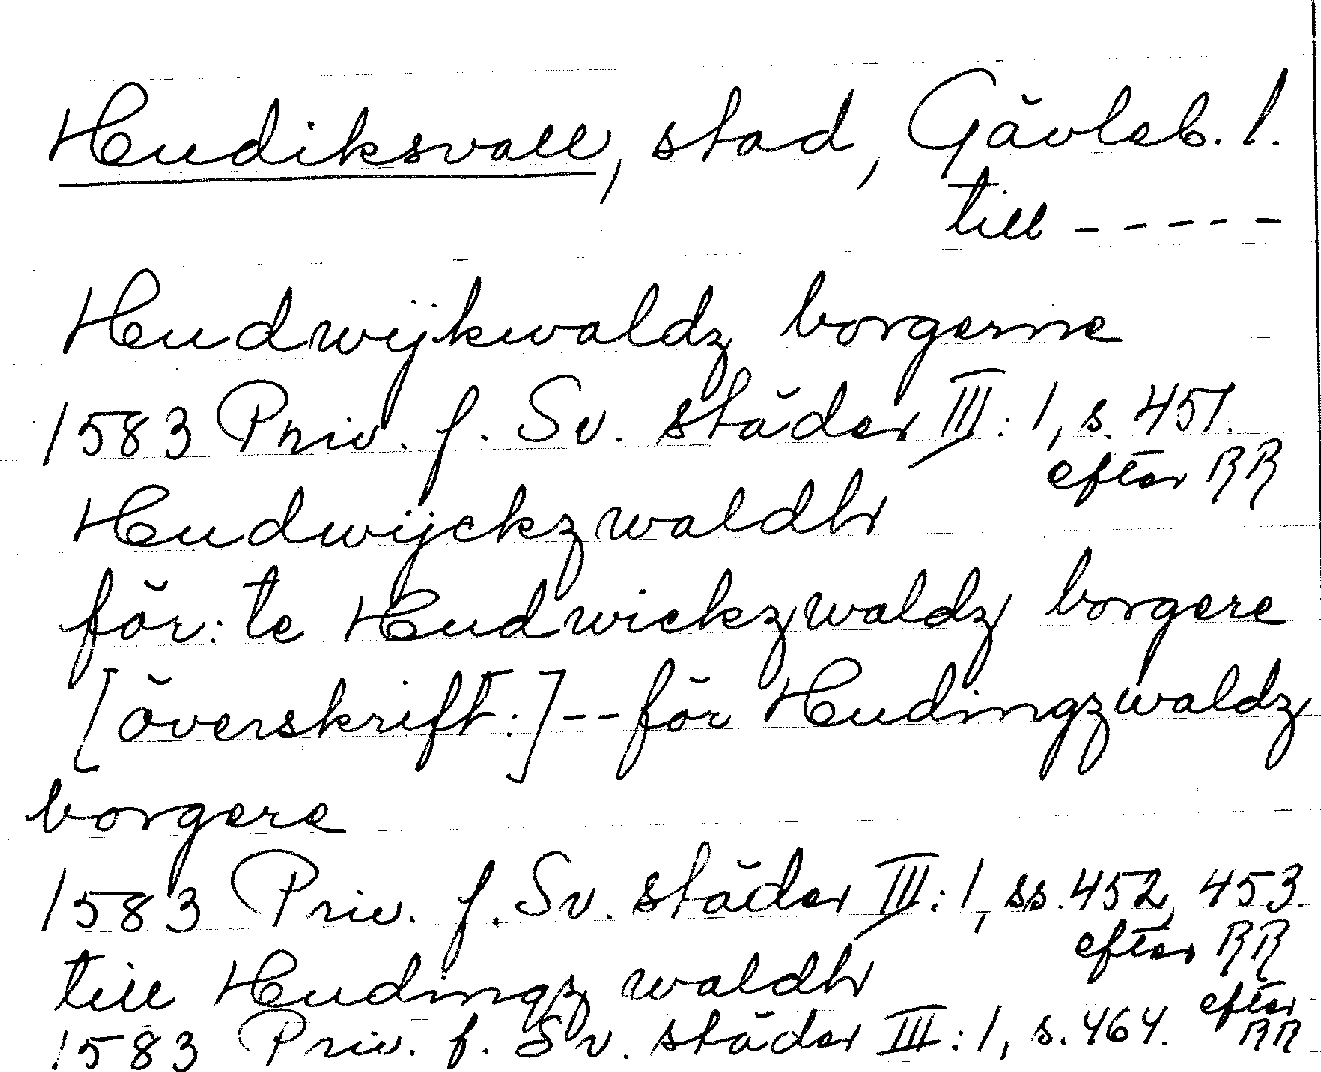 Hudiksvall, stad, Gävleb. l.
till -----
Hudwijkwaldz borgerne
1583 Priv. f. Sv. städer III:1, s. 451.
efter RR
Hudwijckzwaldh
för: te Hudwickzwaldz borgere
[överskrift:]--för Hudingzwaldz
borgere
1583 Priv. f. Sv. städer III:1, ss. 452, 453.
efter RR
till Hudingz waldh
1583 Priv. f. Sv. städer III:1, s. 464. efter
RR